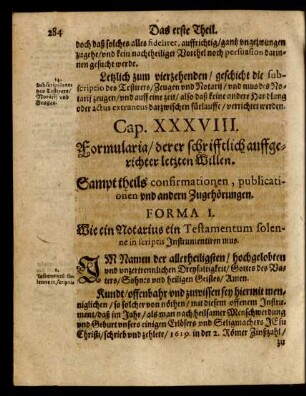 284 Das erste Theil.
doch daß solches alles fideliter, auffrichtig / gantz ungezwungen
zugehe / und kein nachtheiliger Vortheil noch persuasion darin-
nen gesucht werde.
14.
Subscriptiones
des Testirers/
Notarij und
Zeugen.
Letzlich zum vierzehenden / geschicht die sub-
scriptio des Testirers / Zeugen und Notarij / und mus ds No-
tarij zeugen / und auff eine zeit / also daß keine andere Handlung
oder actus extraneus darzwischen fürlauffe / verrichtet werden.
Cap. XXXVIII.
Formularia / derer schrifftlich auffge-
richter letzten Willen.
Sampt theils confirmationen, publicati-
onen und andern Zugehörungen.
FORMA I.
Wie ein Notarius ein Testamentum solen-
ne in scriptis Instrumentiren mus.
1.
Testamentum so-
lenne in scriptis
IM Namen der allerheiligsten / hochgelobten
und unzertrennlichen Dreyfaltigkeit / Gottes des Va-
ters / Sohns und heiligen Geistes / Amen.
Kundt / offenbahr und zuwissen sey hiermit men-
niglichen / so solcher von nöhten / mit diesem offenem Instru-
ment / daß im Jahr / als man nach heilsamer Menschwerdung
und Geburt unsers einigen Erlösers und Seligmachers JEsu
Christi / schrieb und zehlete / 1619. in der 2. Römer Zinßzahl /
zu